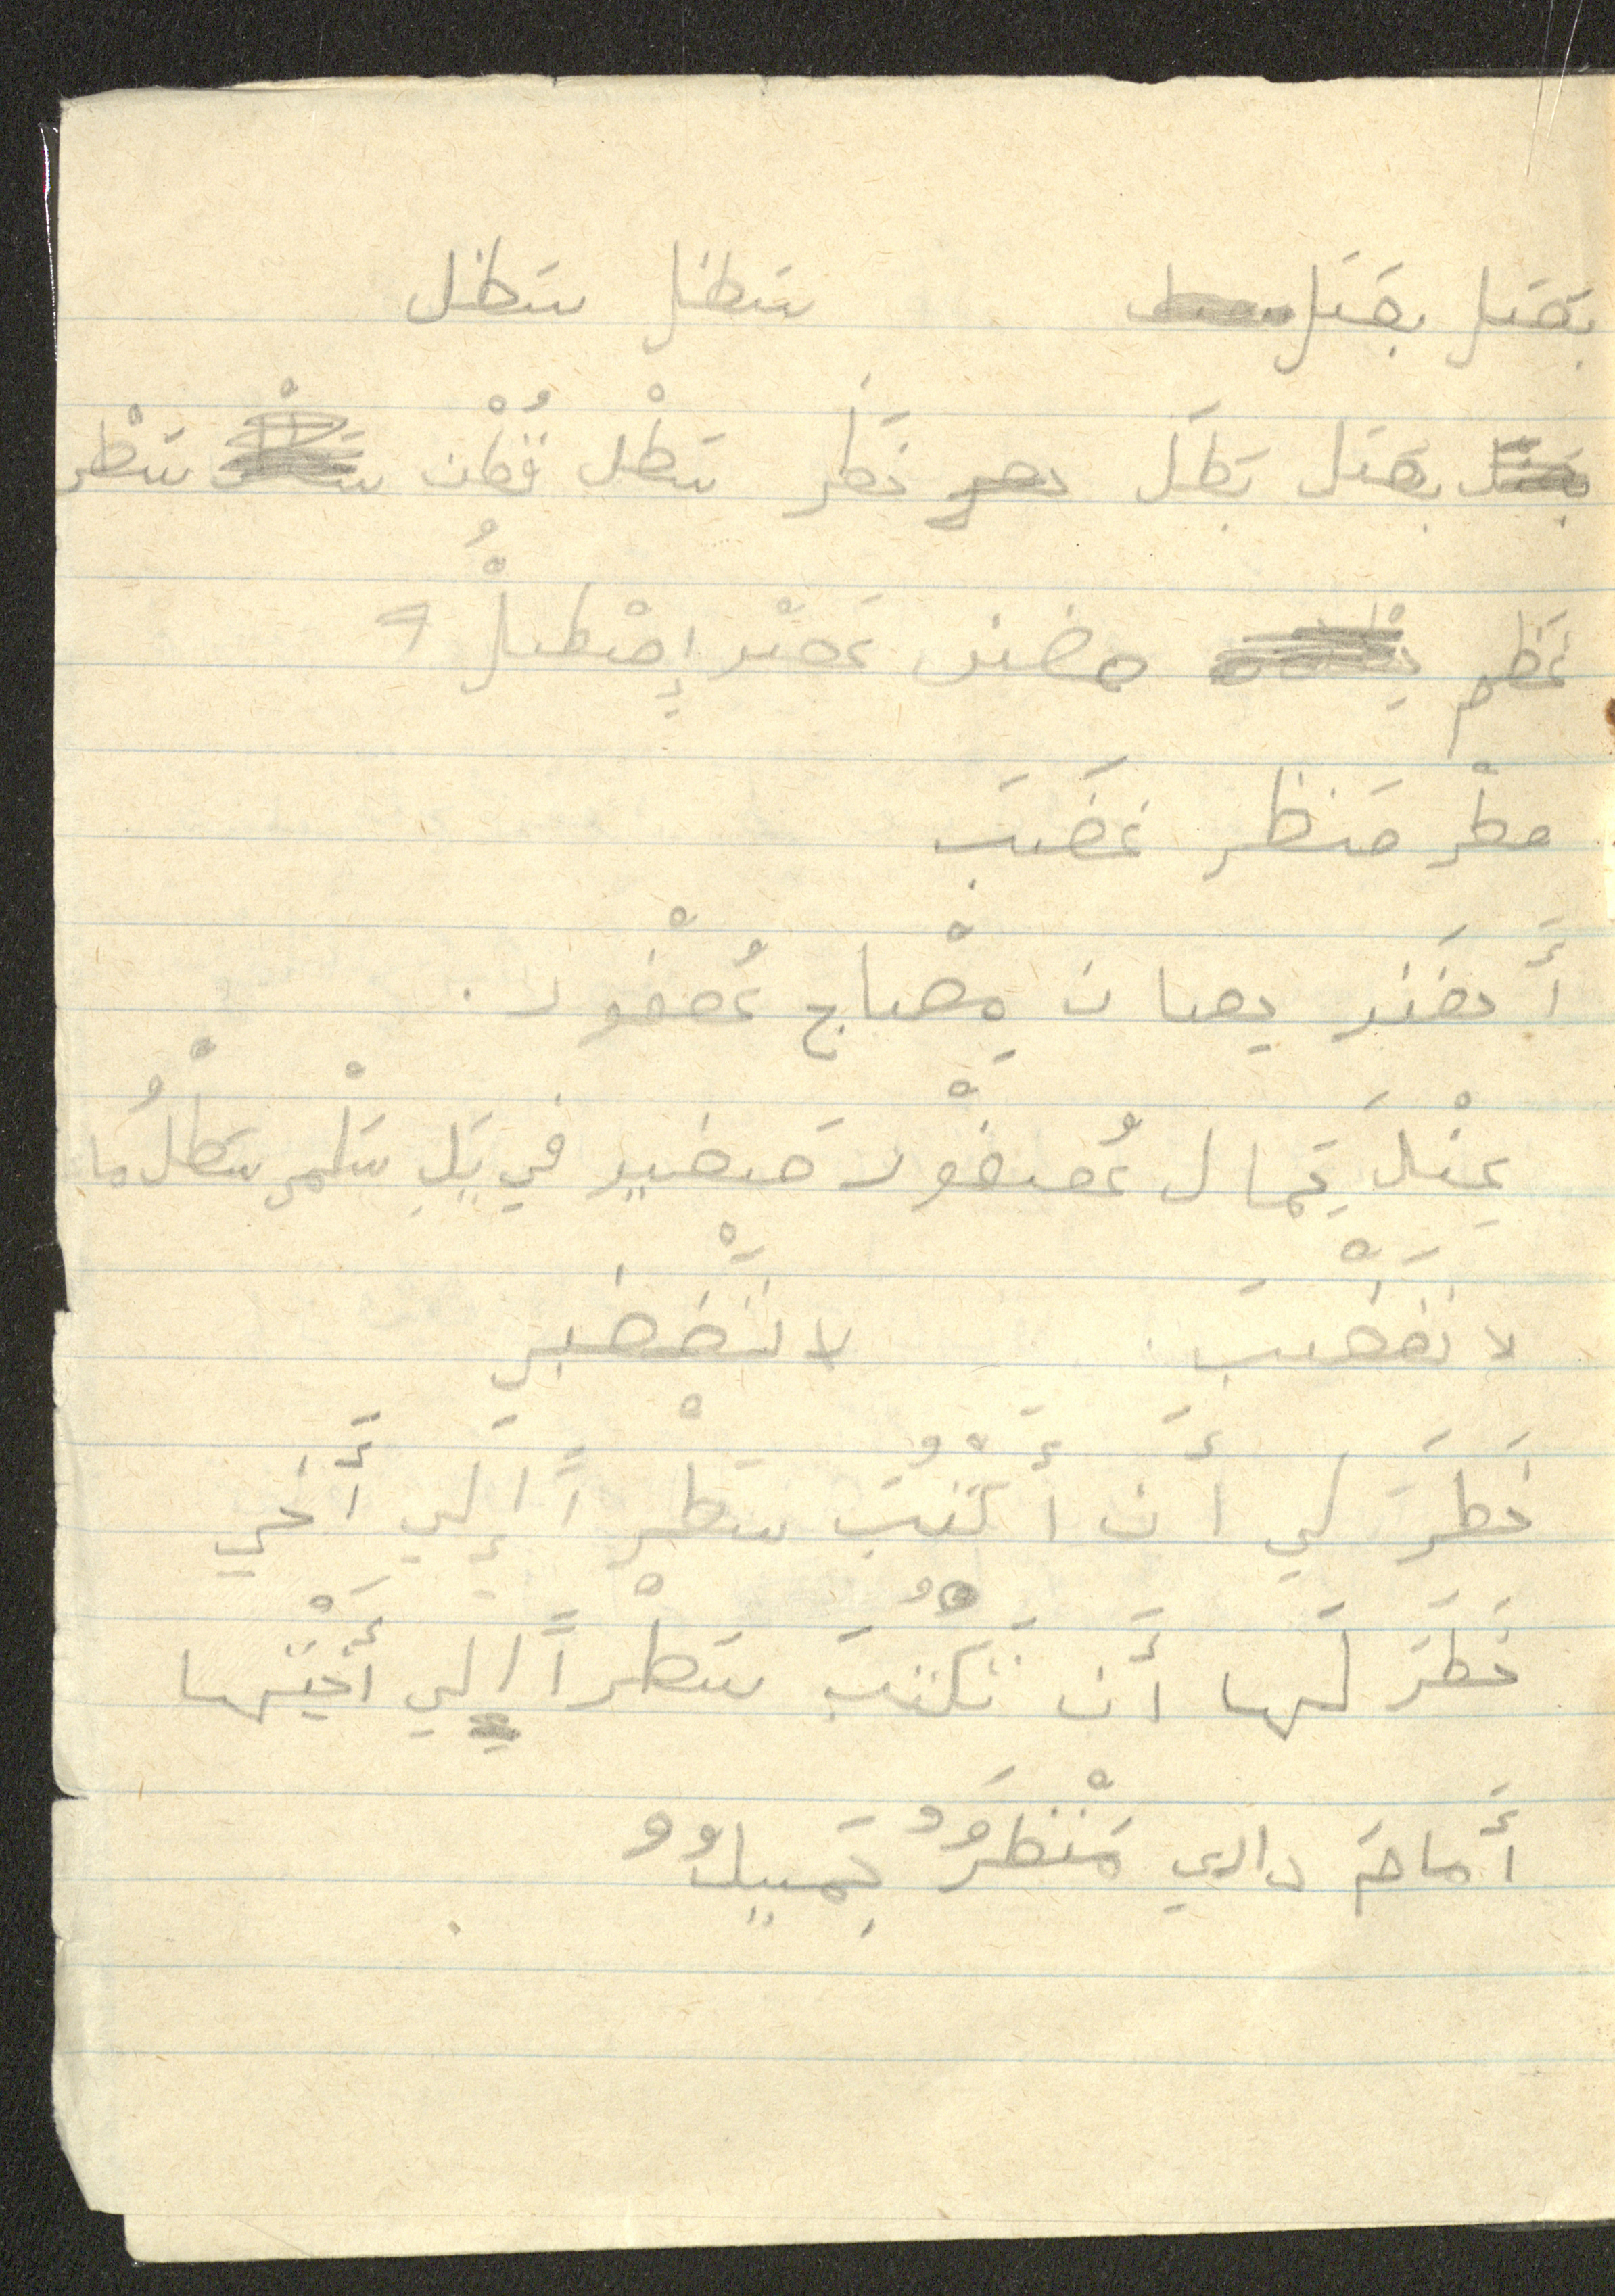 بصل بصل سطل سطل
بصل بطل خطر سطل قُطْن سَطْر
عَظم حضن عَصْر إِصْطبلْ
مطْر منظر غَضَب
أَخضر حصان مِصْباح عُصْفُور.
عِنْدَ جَمال عُصفوْر صَغير في يَدِ سَلْمى سَطْلُ ما
لا تَغْضَب. لا تَغْضَبي
خَطَرَ لي أَن أَكْتُبَ سَطْراً إِلي أَخي
خَطَرَ لَها أَن تَكْتُبَ سَطْراً إلي أُخْتِها
أَمامَ داري مَنْظَرُ جَميلُ